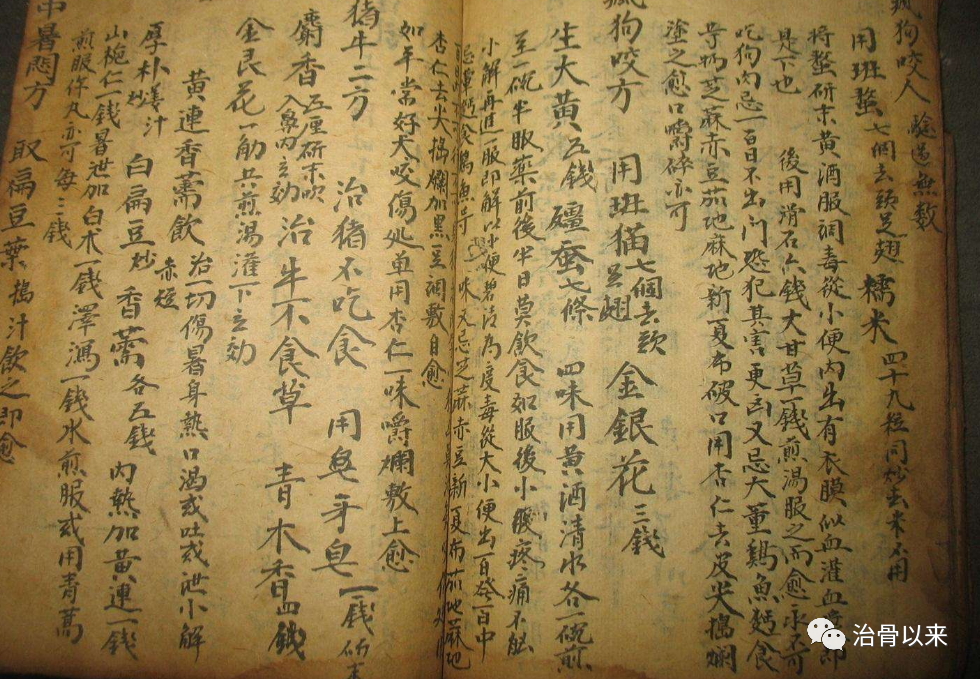 瘋狗咬人 驗過無數
用班蝥七個去頭足翅 糯米四十九粒同炒去米不用
將蝥研末黃酒服調毒從小便內出有衣膜似血灌血
是下也 後用滑石六錢大甘草一錢煎湯服之而愈永不可
吃狗肉忌一百日不出門恐犯其害更 又忌大葷鷄魚麵食
芝麻赤豆茄地麻地新夏布破口用杏仁去皮尖搗爛
塗之愈口嚼碎亦可
瘋狗咬方 用班猫七個去頭足翅 金銀花三錢
生大黃五錢 殭蚕七條 四味用黃酒清水各一碗煎
至一碗半服藥前後半日莫飲食如服後小腹疼痛不
小解再進一服即解以小便碧清為度毒從大小便出百發百中
忌葷麵食鷄魚 味又忌芝麻赤豆新夏布茄地蔴地
杏仁去尖搗爛加黑豆調敷自愈
如平常好犬咬傷処单用杏仁一味嚼爛敷上愈
猪牛二方 治猪不吃食 用皂牙皂一錢
麝香五厘研末吹入鼻內立効 治牛不食草 青木香四錢
金艮花一觔共煎湯灌下立効
黃連香薷飲 治一切傷暑身熱口渴或吐或泄小解赤短
厚朴薑汁炒 白扁豆炒 香薷各五錢 內熱加黃連一錢
山梔仁一錢暑泄加白朮一錢澤瀉一錢水煎服或用青蒿
煎服 丸亦可每三錢
中暑悶方 取扁豆葉搗汁飲之即愈
治骨以来